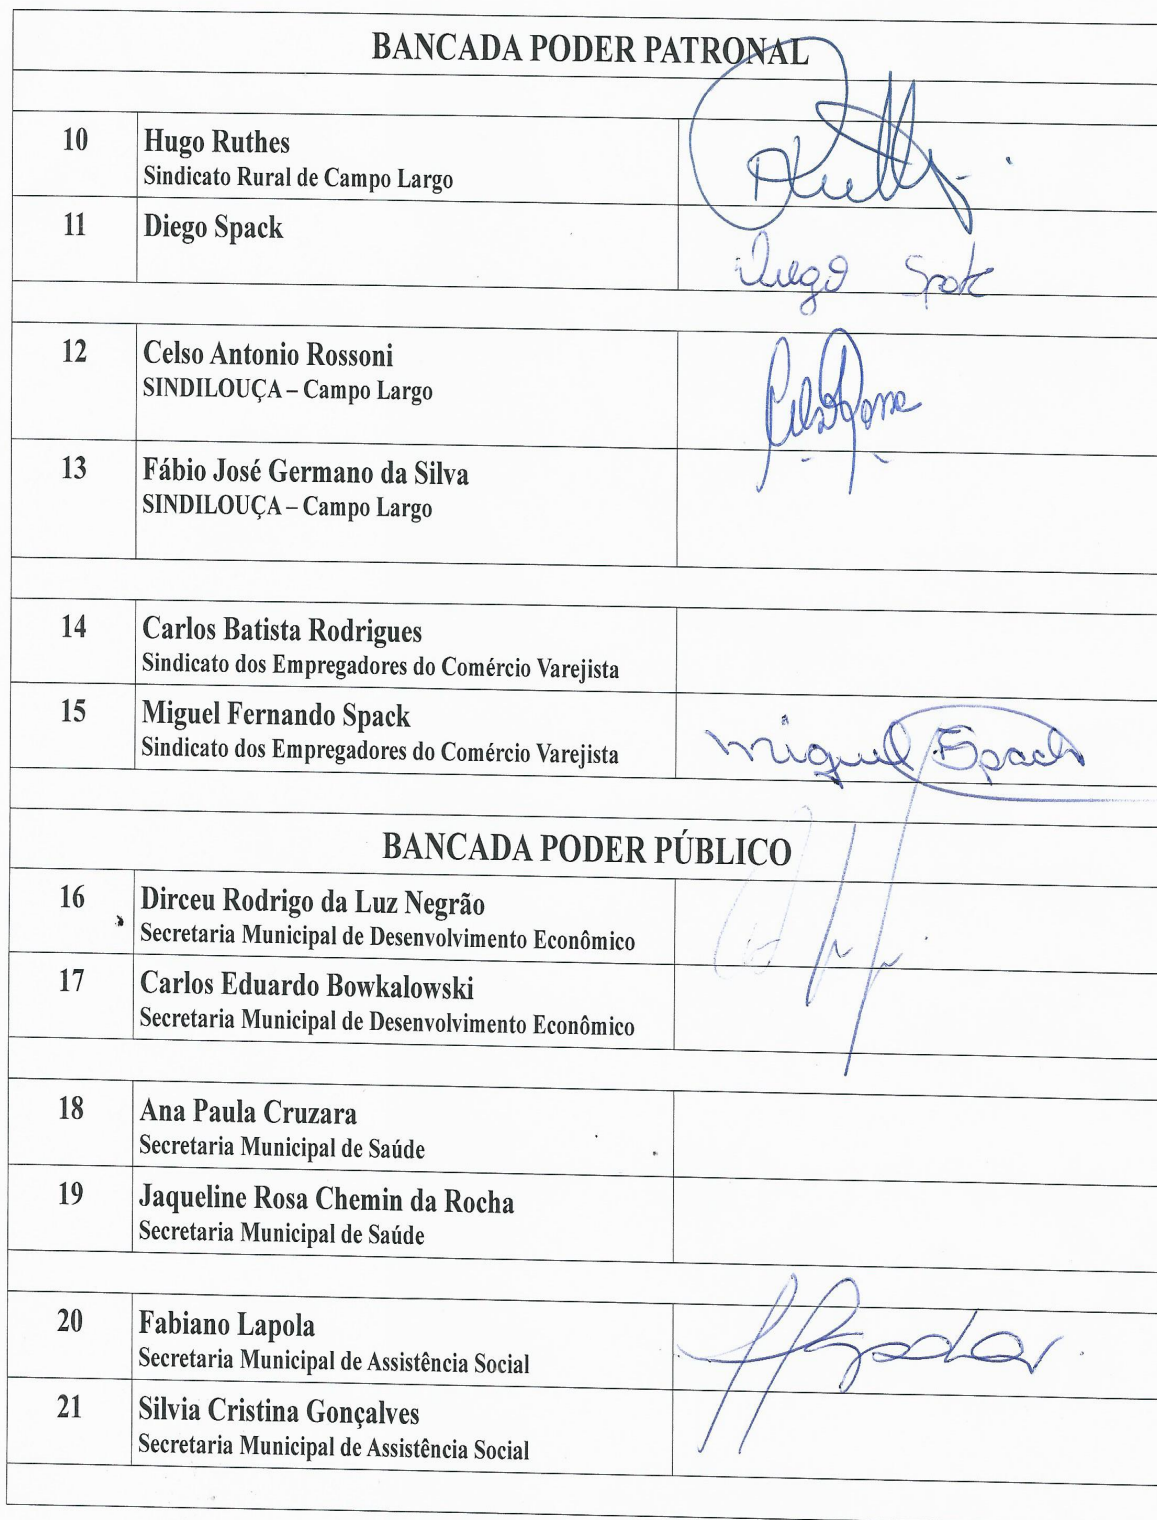 BANCADA PODER PATRONAL
10 Hugo Ruthes
Sindicato Rural de Campo Largo
11 Diego Spack
Diego Spack
12 Celso Antonio Rossoni
SINDILOUÇA – Campo Largo
13 Fábio José Germano da Silva
SINDILOUÇA – Campo Largo
14 Carlos Batista Rodrigues
Sindicato dos Empregadores do Comércio Varejista
15 Miguel Fernando Spack
Sindicato dos Empregadores do Comércio Varejista
Miguel Spack
BANCADA PODER PÚBLICO
16 Dirceu Rodrigo da Luz Negrão
Secretaria Municipal de Desenvolvimento Econômico
17 Carlos Eduardo Bowkalowski
Secretaria Municipal de Desenvolvimento Econômico
18 Ana Paula Cruzara
Secretaria Municipal de Saúde
19 Jaqueline Rosa Chemin da Rocha
Secretaria Municipal de Saúde
20 Fabiano Lapola
Secretaria Municipal de Assistência Social
21 Silvia Cristina Gonçalves
Secretaria Municipal de Assistência Social